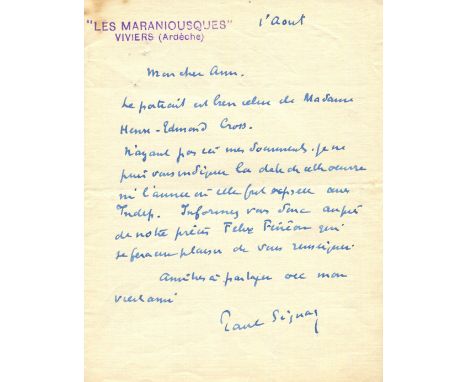 "LES MARANIOUSQUES"
VIVIERS (Ardèche)
1' Aout
Mon cher Ami.
Le portrait est bien celui de Madame
Henri-Edmond Cross.
N'ayant pas ici mes documents, je ne
puis vous indiquer la date de cette oeuvre
ni l'année où elle fut exposée aux
Indep. Informez vous donc auprès
de notre précis Felix Fénéon qui
se fera un plaisir de vous renseigner
Amitiés à partager avec mon
vieil ami
Paul Signac